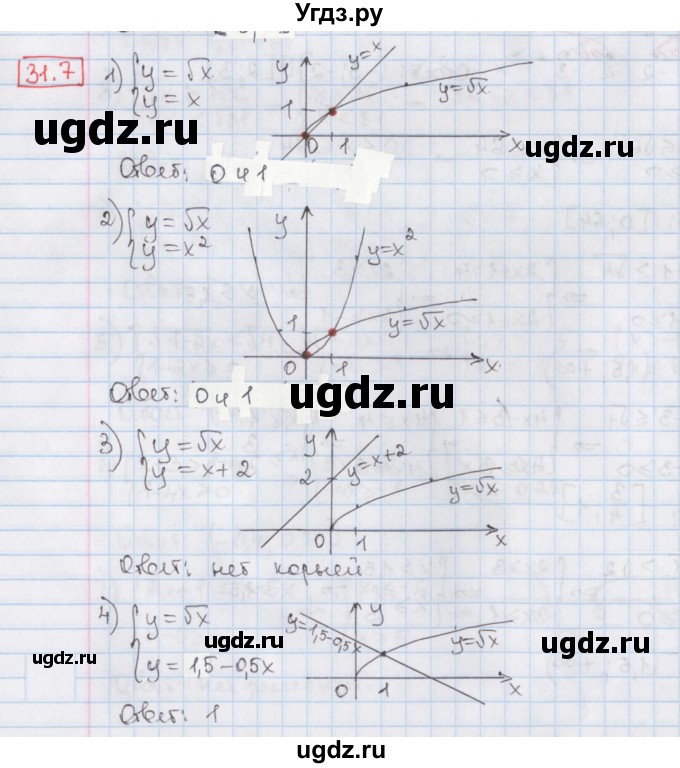 Угдз.ру
31.7
1) { y = √x
y = x
y
y=x
y=√x
1
0 1 x
ugdz.ru
ugdz.ru
Ответ: 0 и 1
2) { y = √x
y = x²
y
y=x²
y=√x
1
0 1 x
Ответ: 0 и 1
ugdz.ru
ugdz.ru
3) { y = √x
y = x + 2
y
y=x+2
2
y=√x
0 1 x
Ответ: нет корней
4) { y = √x
y = 1,5 – 0,5x
y
y=1,5-0,5x
y=√x
0 1 x
ugdz.ru
ugdz.ru
ugdz.ru
Ответ: 1
ugdz.ru